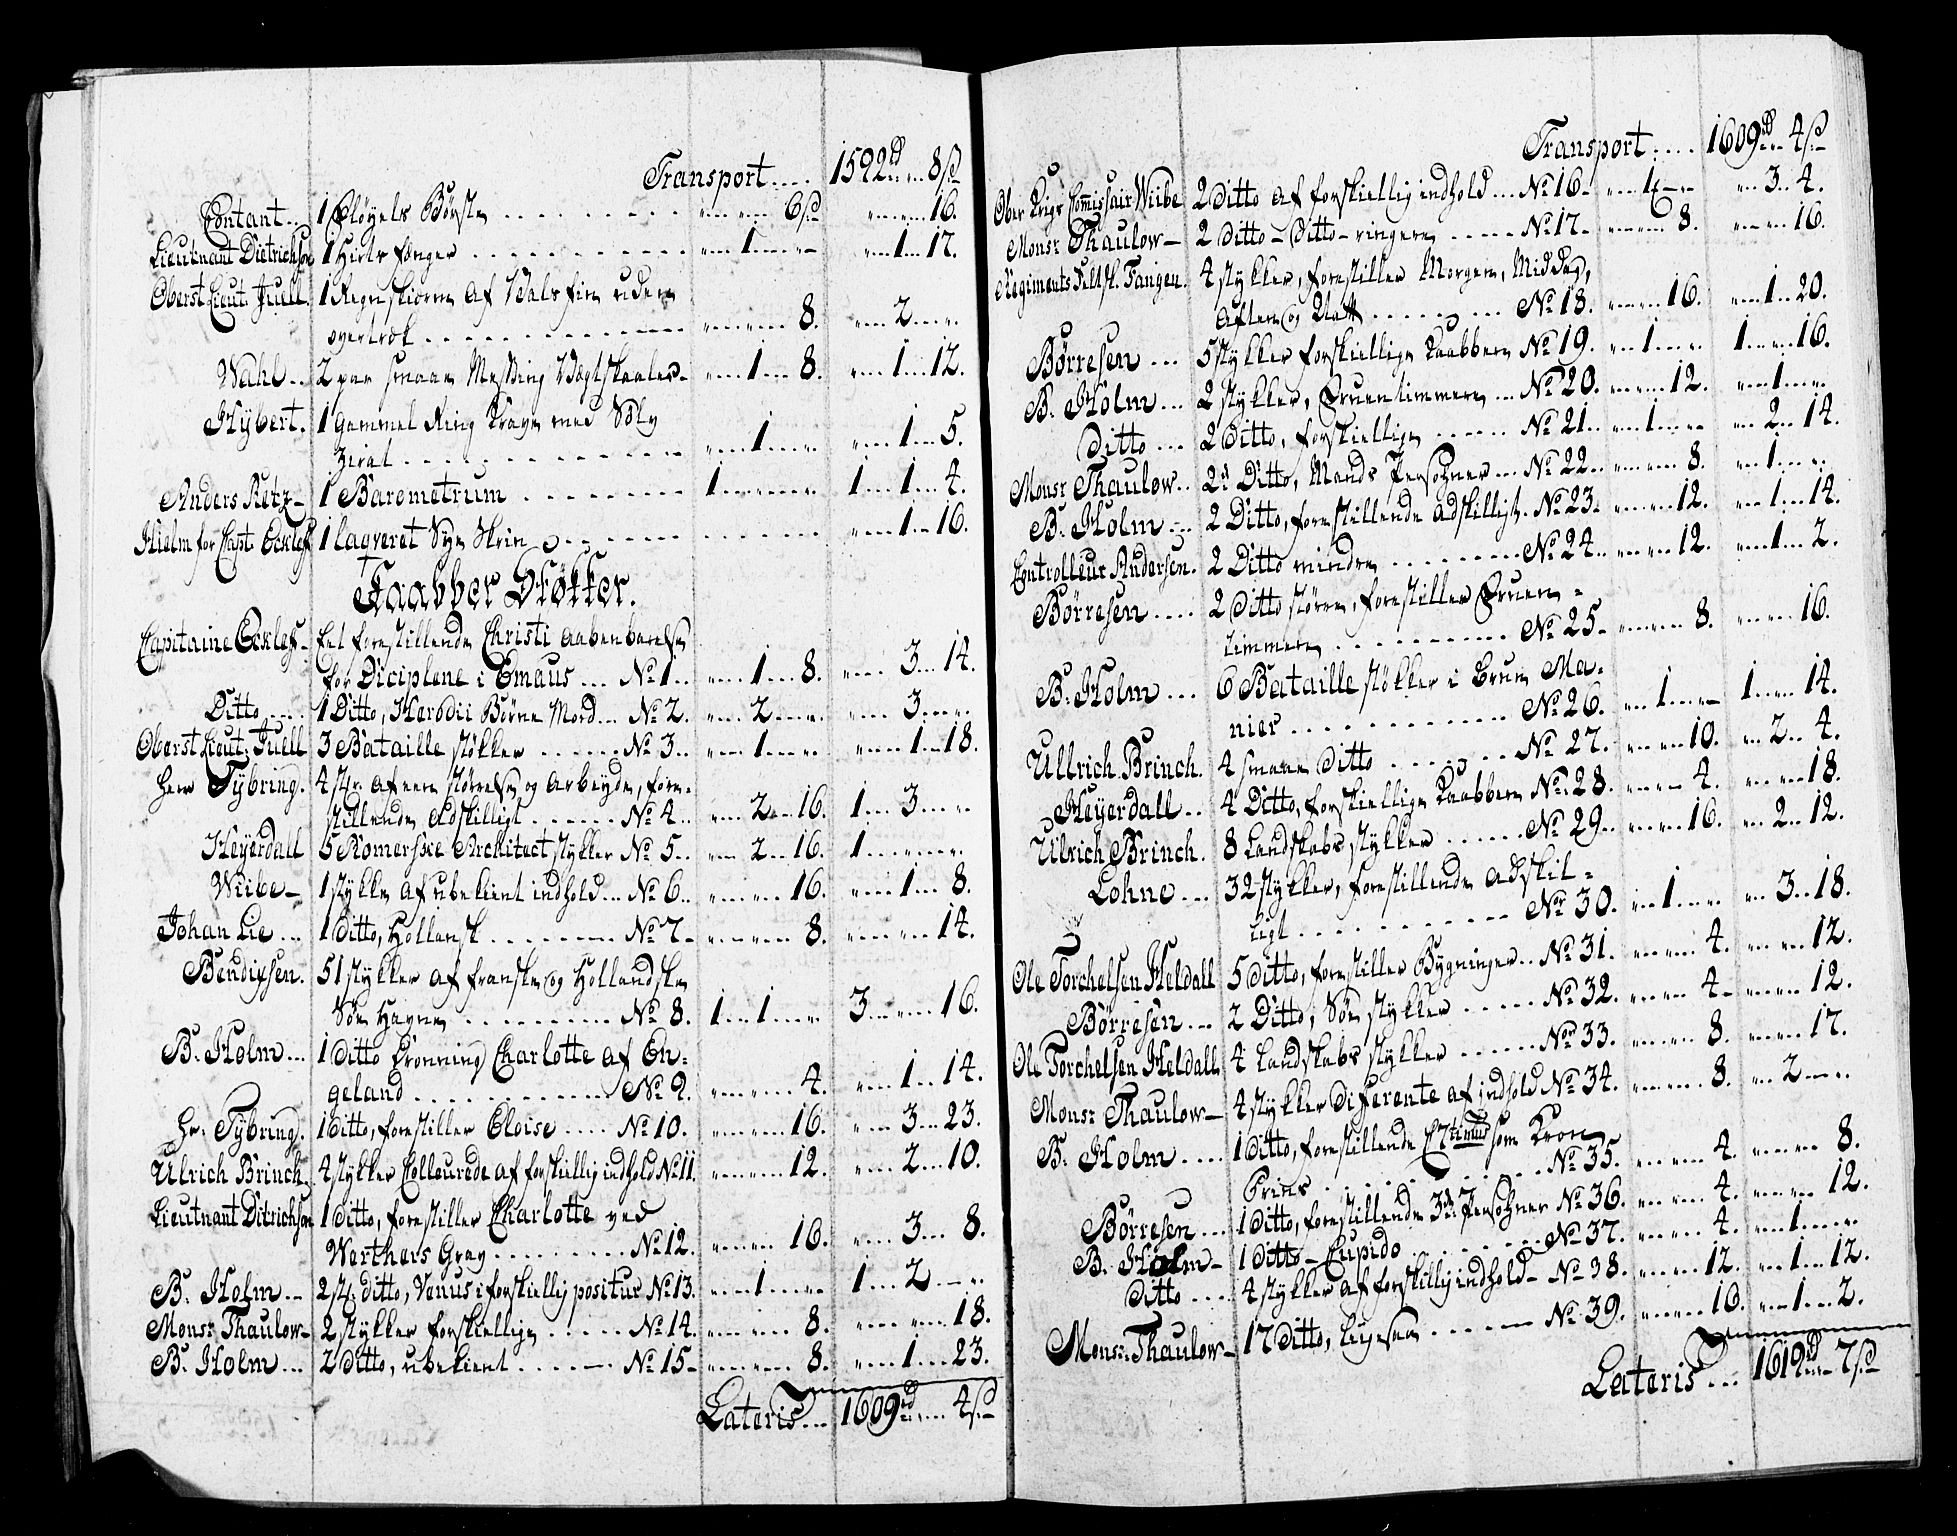 Transport.... 1592 rd .... 8 s
Contant... 1 Fløyels Børste ......... 6 s .... 16.
Lieutnant Dietrichson 1 Hiort fænger ......... 1 .... 1..17.
Oberst Lieut: Juell 1 Regnskiorm af Valsfin uden
overtræk ......... 8. .... 2 ....
Wahl... 2 par smaae Messing Vægtskaaler .... 1 .. 8. .... 1 .. 12.
Hybert. 1 gammel Ring Krave med Sølv
Zirat ......... 1 .... 1 .. 5.
Anders Retz 1 Barometrum ......... 1 .... 1 .. 1 .. 4.
Hielm for Capt: Eckleff 1 laqveret Sye Skrin ......... 1 .. 16.
Kaabber Støkker.
Capitaine Eckleff Eet forestillende Christi aabenbarelse
for Diciplene i Emaus ... No 1.. 1 .. 8. .... 3 .. 14.
Ditto .... 1 Ditto, Herodii Børne Mord... No 2. .... 2 .... 3 ....
Oberst Lieut: Juell 3 Bataille støkker ...... No 3... 1 .... 1 .. 18.
Herr Tybring. 4 stk. af een størrelse og arbeyde, fore-
stillende adskilligt ...... No 4... 2 .. 16. 1 .. 3 ....
Heyerdall 5 Romerske Architect stykker No 5.. 2 .. 16. 1 ....
Wiibe 1 stykke af ubekient indhold... No 6.. 16. .... 1 .. 8.
Johan Lie ... 1 Ditto, Hollansk ........ No 7 .... 8. .... 14.
Bendixsen. 51 stykker af franske og Hollandske
Søe Havne ......... No 8. 1 .. 1 .... 3 .... 16.
B. Holm... 1 Ditto Dronning Charlotte af En-
geland ............ No 9. .... 4. .... 1 .. 14.
Hr. Tybring. 1 Ditto, forestiller Eloise .... No 10. .... 16. .... 3 .. 23.
Ulrich Brinch. 4 stykker Colleurede af forskiellig indhold No 11. .... 12. .... 2 .. 10.
Lieutnant Ditrichson 1 Ditto, forestiller Charlotte ved
Werthers Grav ......... No 12. .... 16. .... 3 .. 8.
B. Holm ... 2 stk. ditto, Venus i forskiellig positur No 13. .... 1 .... 1 .. 2 ....
Monsr Thaulow 2 stykker forskiellige ..... No 14. .... 8. .... 18.
B. Holm ... 2 Ditto, ubekient ........ No 15 .... 8. .... 1 .. 23.
Lateris... 1609 rd .... 4 s
Transport .... 1609 rd .. 4 s
Ober Krigs Comissair Wiibe 2 Ditto af forskiellig indhold ... No 16 .... 1 .... 3 .. 4.
Monsr Thaulow 2 Ditto - Ditto - ringere ..... No 17 .... 8. .... 16.
Regiments Feltsk. Tangen. 4 stykker, forestiller Morgen, Middag,
Aften og Natt ......... No 18. .... 16. .... 1 .. 20.
Børresen ... 5 stykker forskiellige Kaabbere No 19. .... 1 .... 1 .... 16.
B. Holm ... 2 stykker, Fruentimmere ... No 20. .... 12. .... 1 ....
Ditto ... 2 Ditto, forskiellige ...... No 21 .... 1 .... 2 .. 14.
Monsr Thaulow .. 2 Ditto, Mands Persohner ... No 22 .... 8. .... 1 ....
B. Holm ... 2 Ditto, forestillende adskilligt. No 23. .... 12. .... 1 .. 14.
Controlleur Andersen. 2 Ditto mindre ......... No 24 .. 12. .... 1 .. 2.
Børresen .... 2 Ditto større, forestiller Fruen-
timmere ......... No 25 .... 8. .... 16.
B. Holm ... 6 Bataille støkker i brun Ma-
nier ............ No 26. .... 1 .... 1 .... 14.
Ullrich Brinch. 4 smaae Ditto ......... No 27. .... 10. .... 2 .. 4.
Heyerdall .. 4 Ditto, forskiellige Kaabbere No 28. .... 4. .... 18.
Ulrich Brinch. 8 Landskabs stykker ...... No 29. .... 16. .... 2 .. 12.
Lohne ... 32 stykker, forestillende adskil-
ligt ............ No 30. .... 1 .... 3 .. 18.
Ole Torchelsen Heldall 5 Ditto, forestiller Bygninger .. No 31. .... 4. .... 12.
Børresen ... 2 Ditto, Søe stykker ..... No 32. .... 4 .... 12.
Ole Torchelsen Heldall 4 Landskabs stykker ...... No 33. .... 8. .... 17.
Monsr Thaulow 4 stykker diferente af indhold No 34. .... 8. .... 2 ....
B. Holm .... 1 Ditto, forestillende som Kron
Prins ............ No 35. .... 4. .... 8.
Børresen ... 1 Ditto, forestillende 3de Persohner No 36. .... 4. .... 12.
B. Holm 1 Ditto - Cupido ......... No 37. .... 4. .... 1 ....
Ditto .... 4 stykker af forskiellig indhold No 38. .... 12. .... 1 .. 12.
Monsr. Thaulow 17 Ditto, ligesaa ...... No 39. .... 10. .... 1 .. 2.
Lateris ... 1619 rd .. 7 s